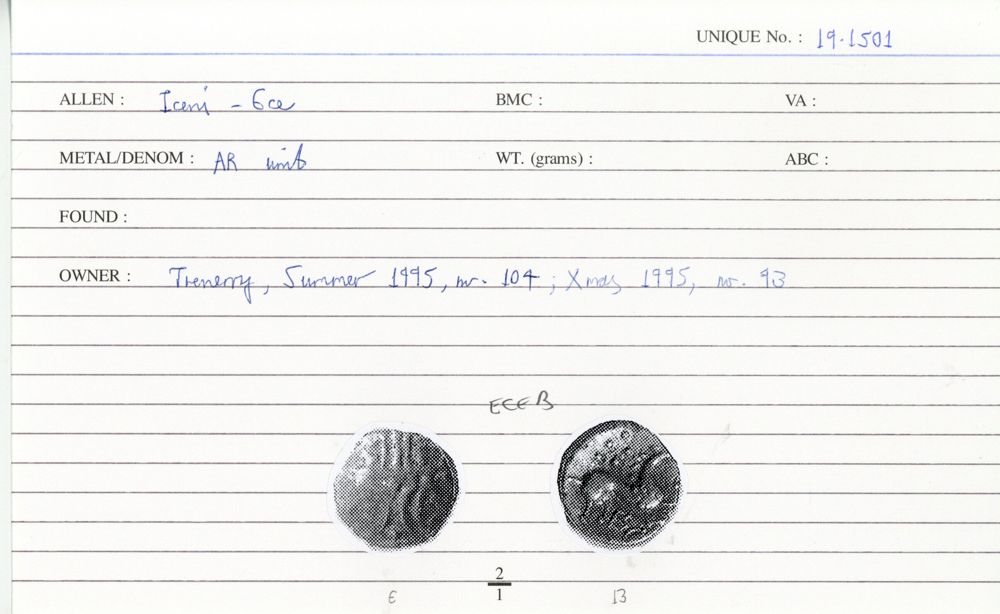 UNIQUE No. : 19.1501
ALLEN : Iceni - Ece BMC : VA :
METAL/DENOM : AR unit WT. (grams) : ABC :
FOUND :
OWNER : Trenerry, Summer 1995, nr. 104 ; Xmas 1995, nr. 93
ECE B
2
1
E B